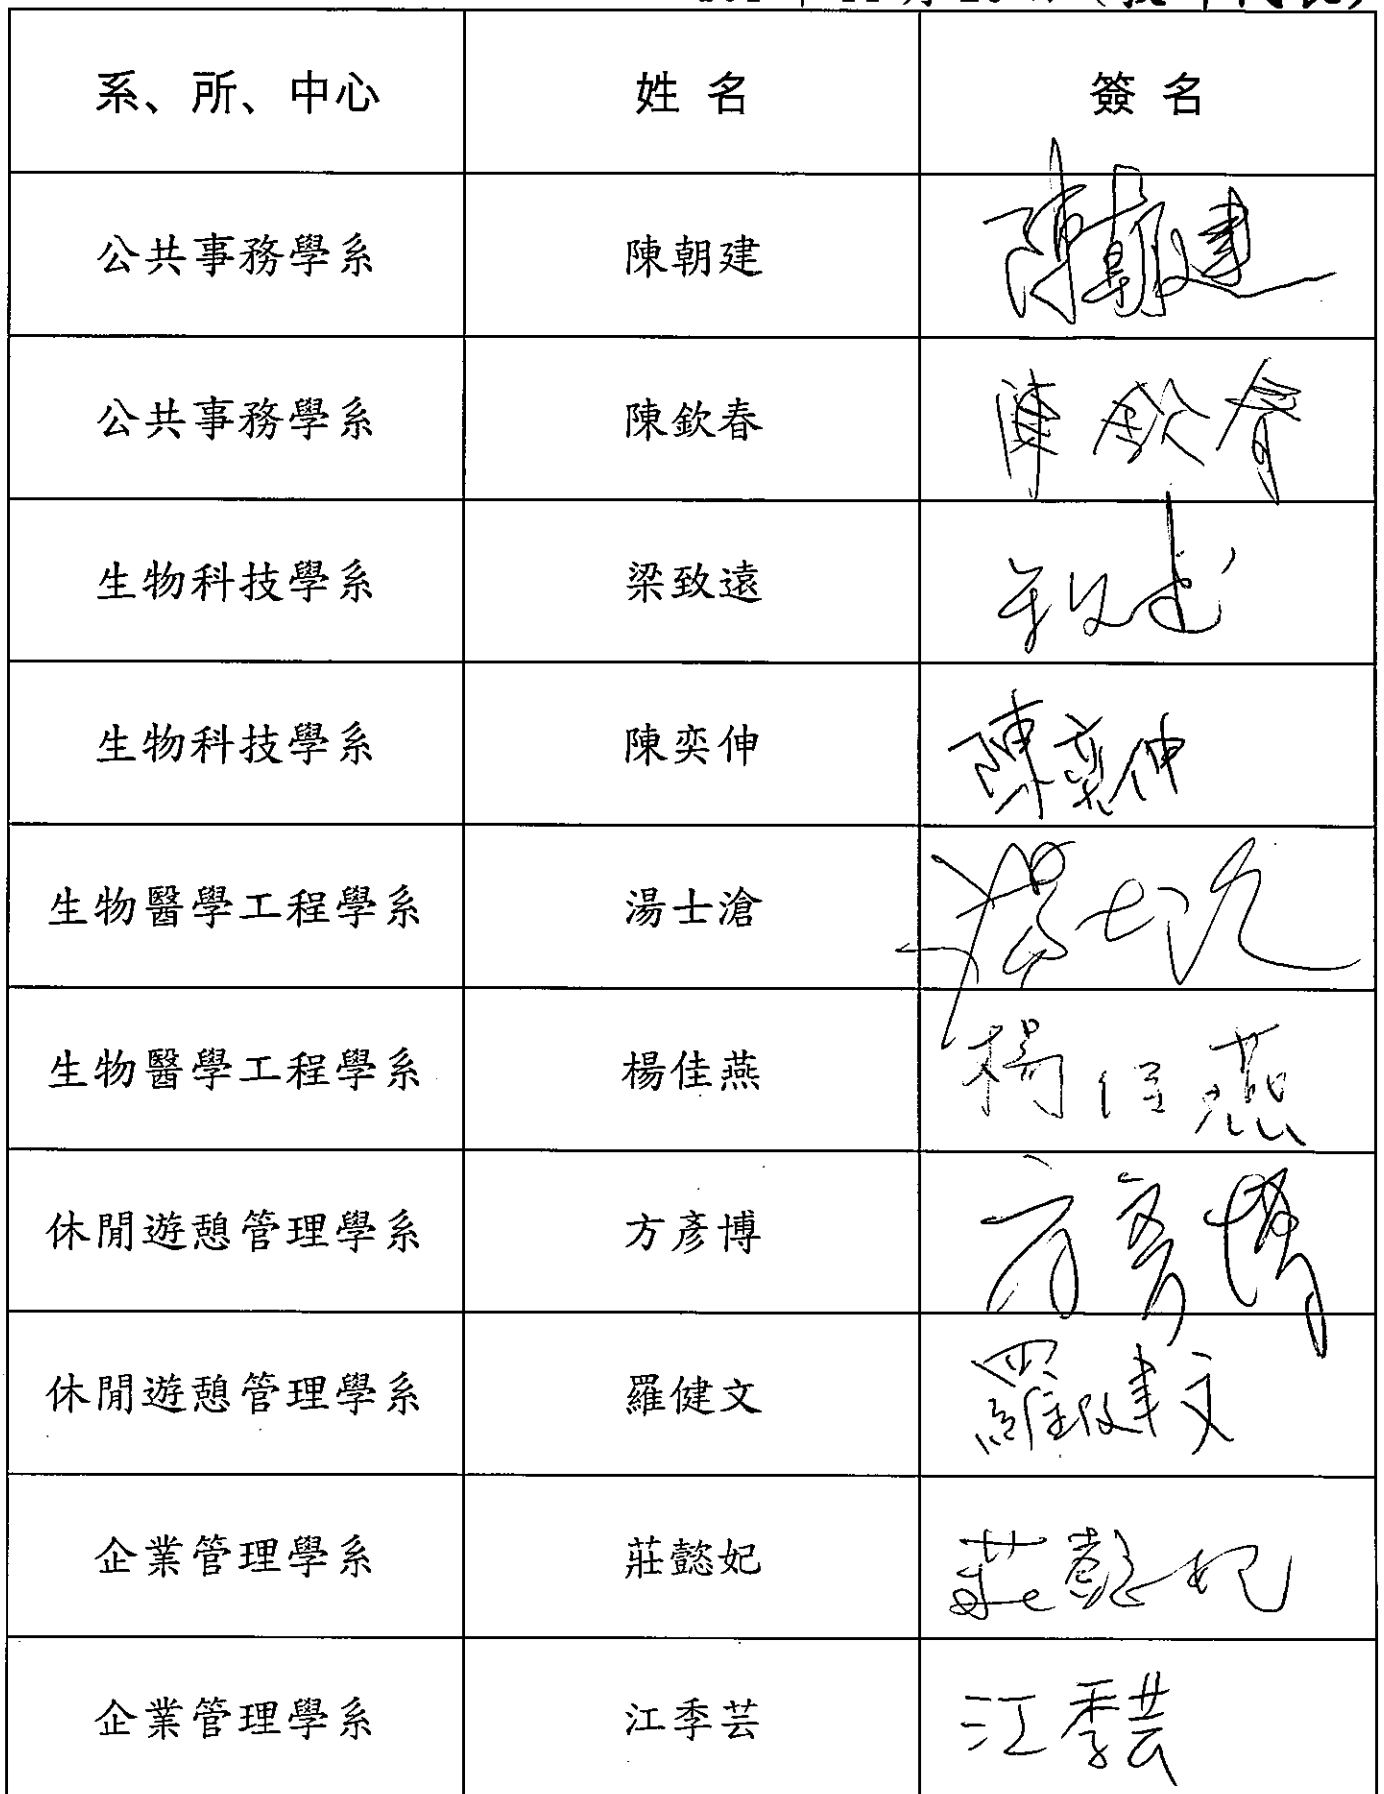 系、所、中心 姓 名 簽 名
公共事務學系 陳朝建 陳朝建
公共事務學系 陳欽春 陳欽春
生物科技學系 梁致遠 致遠
生物科技學系 陳奕伸 陳奕伸
生物醫學工程學系 湯士滄 湯士滄
生物醫學工程學系 楊佳燕 楊佳燕
休閒遊憩管理學系 方彥博 方彥博
休閒遊憩管理學系 羅健文 羅健文
企業管理學系 莊懿妃 莊懿妃
企業管理學系 江季芸 江季芸